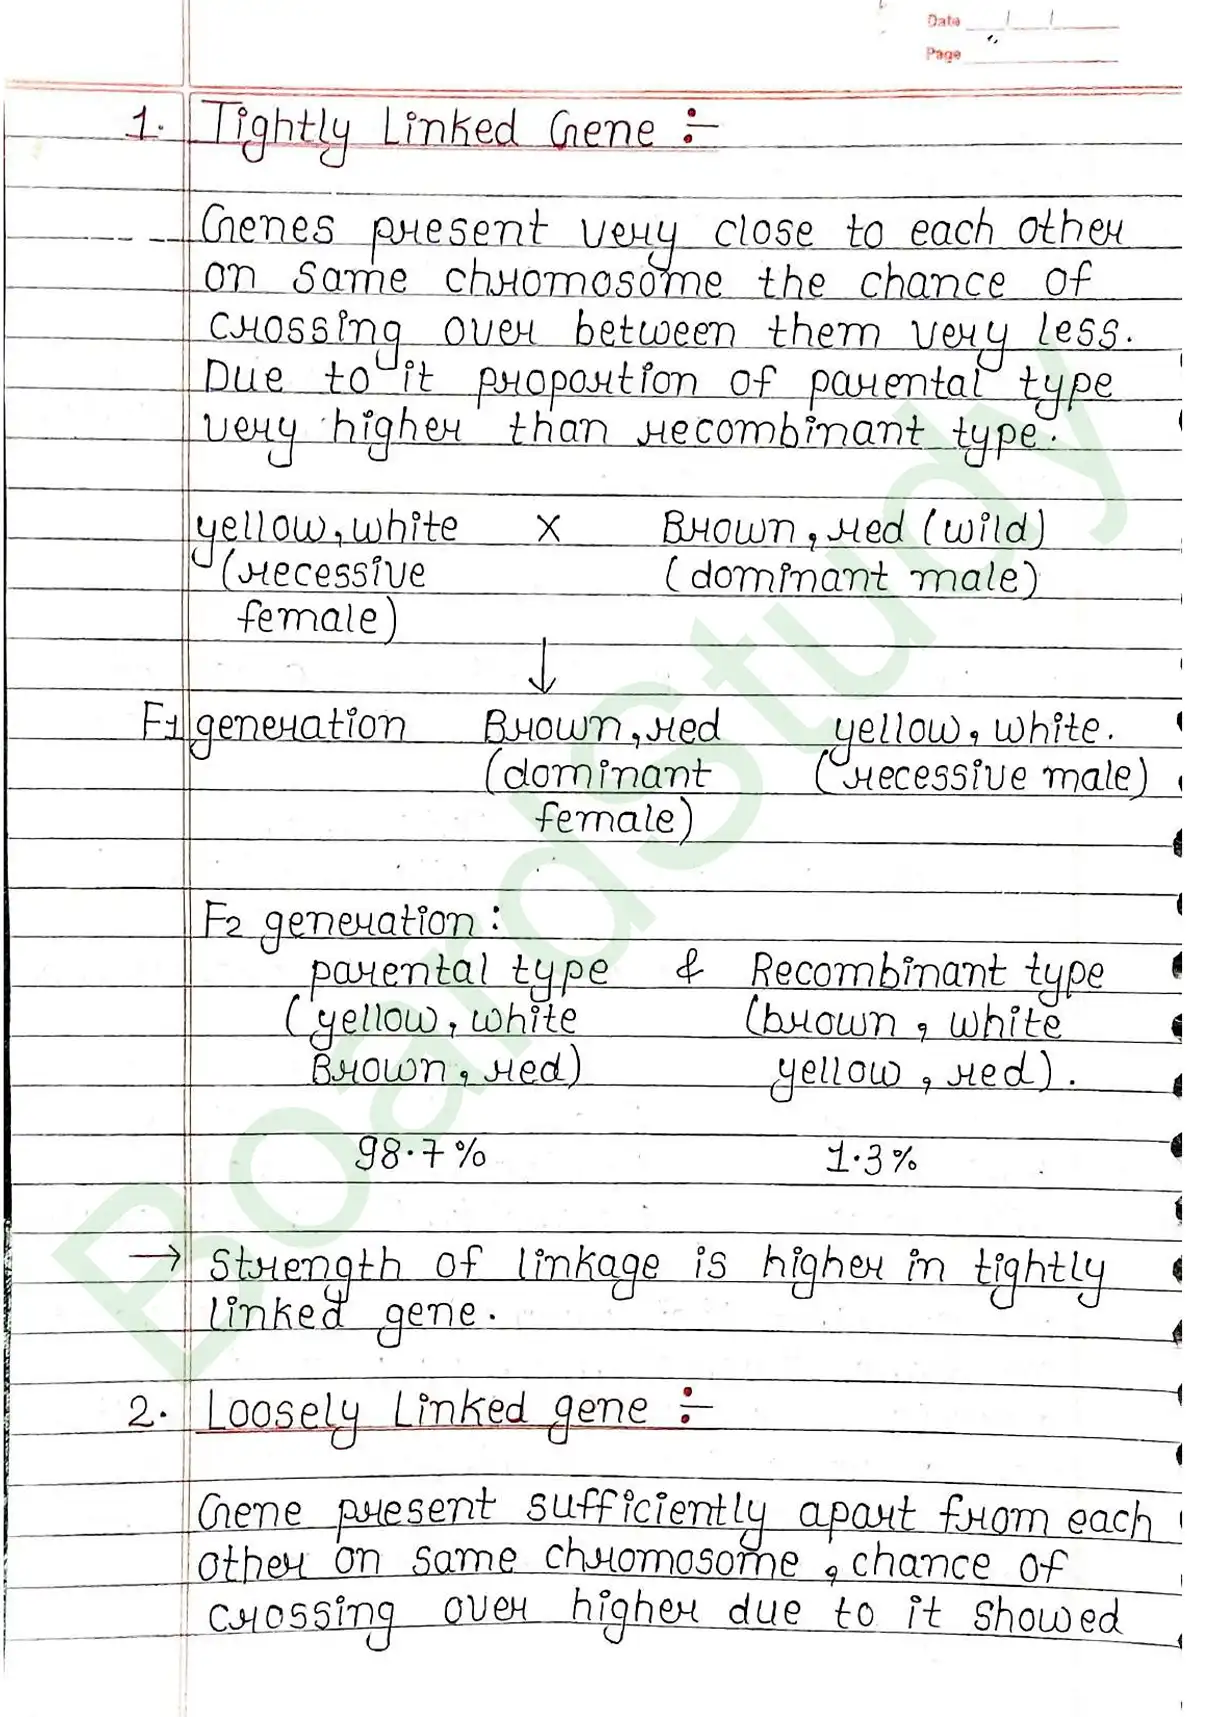 Date / /
Page
1. Tightly Linked Gene :-
Genes present very close to each other
on same chromosome the chance of
crossing over between them very less.
Due to it proportion of parental type
very higher than recombinant type.
yellow, white X Brown, red (wild)
(recessive (dominant male)
female)
↓
F1 generation Brown, red yellow, white.
(dominant (recessive male)
female)
F2 generation :
parental type & Recombinant type
(yellow, white (brown, white
Brown, red) yellow, red).
98.7% 1.3%
→ Strength of linkage is higher in tightly
linked gene.
2. Loosely Linked gene :-
Gene present sufficiently apart from each
other on same chromosome, chance of
crossing over higher due to it showed
BoardStudy